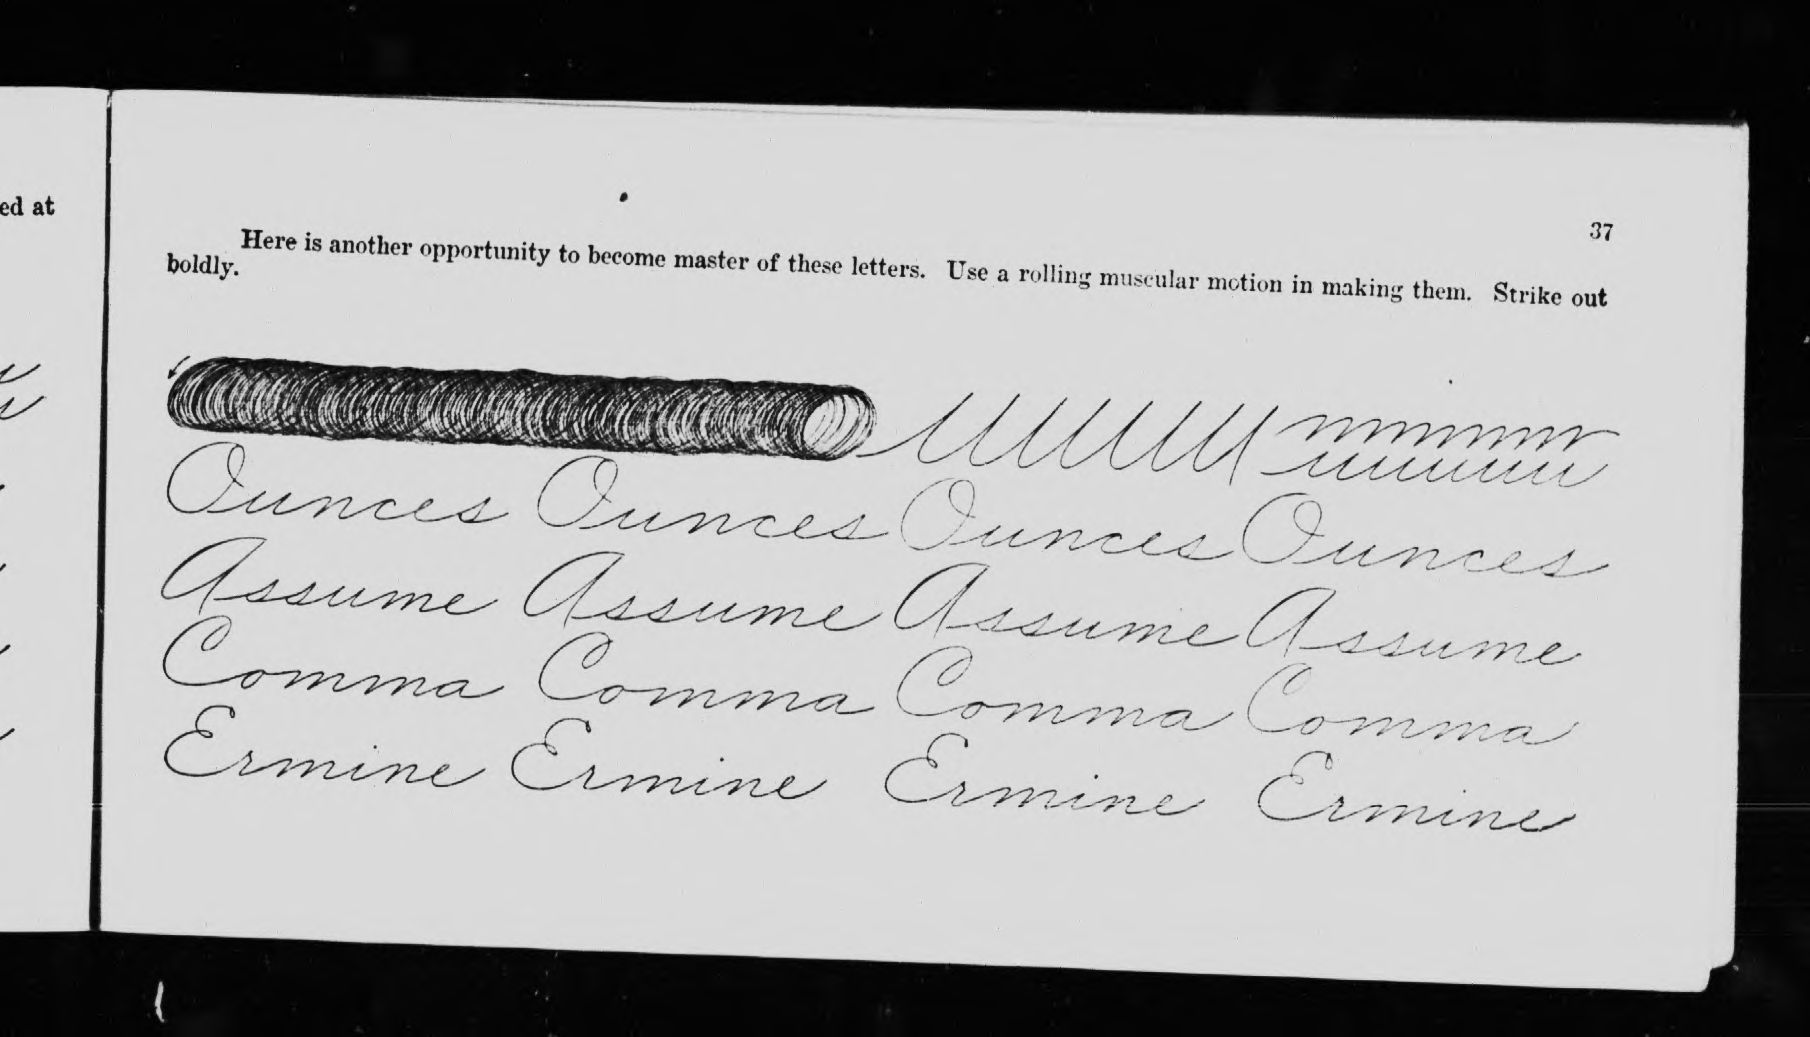 ed at
37
Here is another opportunity to become master of these letters. Use a rolling muscular motion in making them. Strike out
boldly.
Ounces Ounces Ounces Ounces
Assume Assume Assume Assume
Comma Comma Comma Comma
Ermine Ermine Ermine Ermine